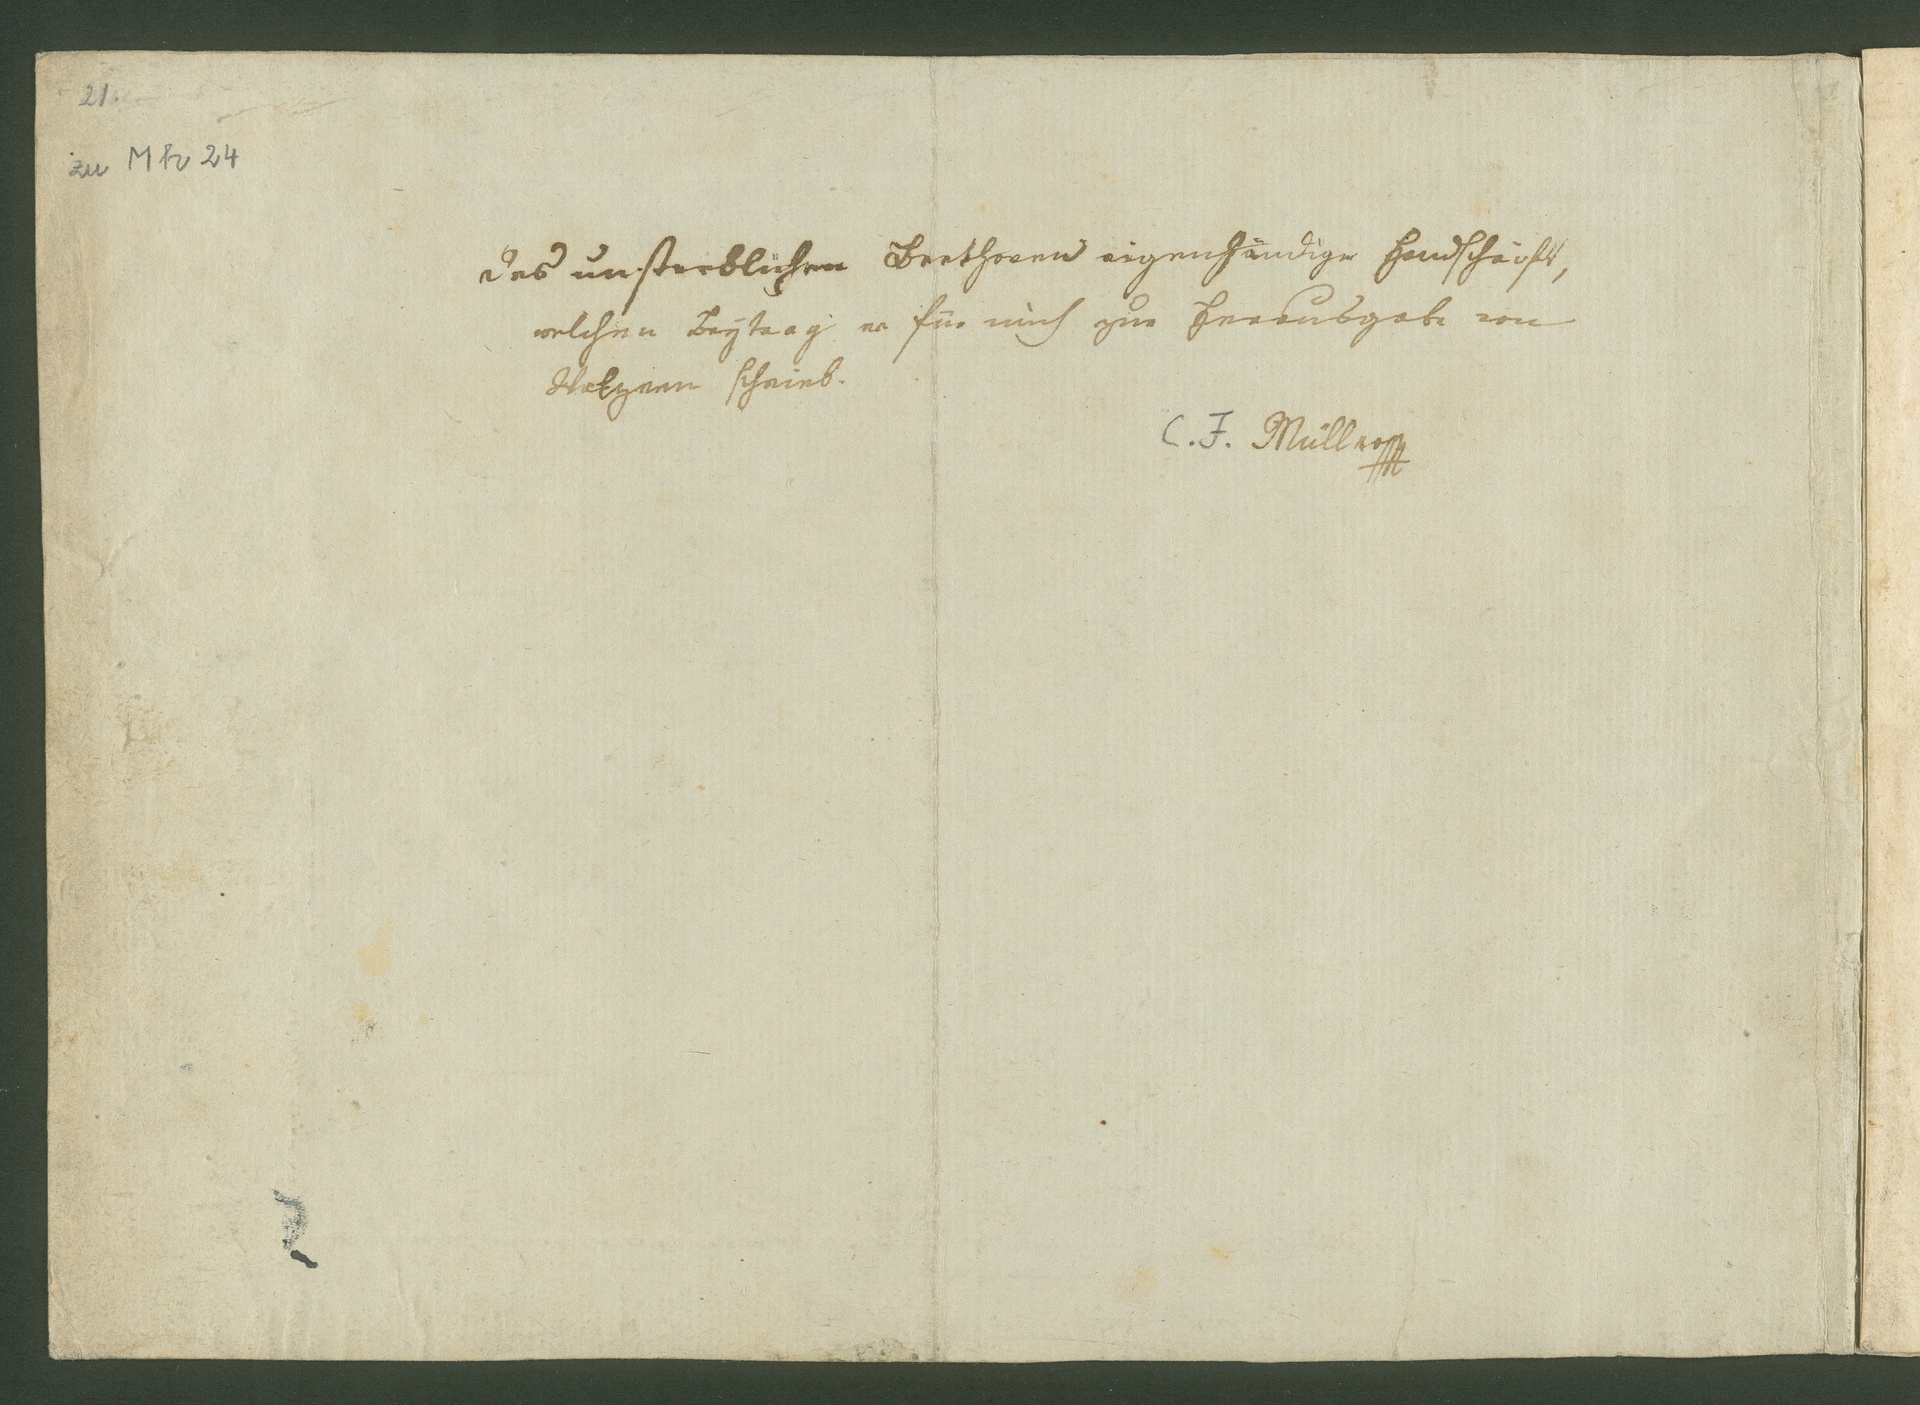 21.
zu Mh 24
Des unsterblichen Beethoven eigenhändige Handschrift,
welchen Beytrag er für mich zur Herausgabe von
Walzern schrieb.
C. F. Müller